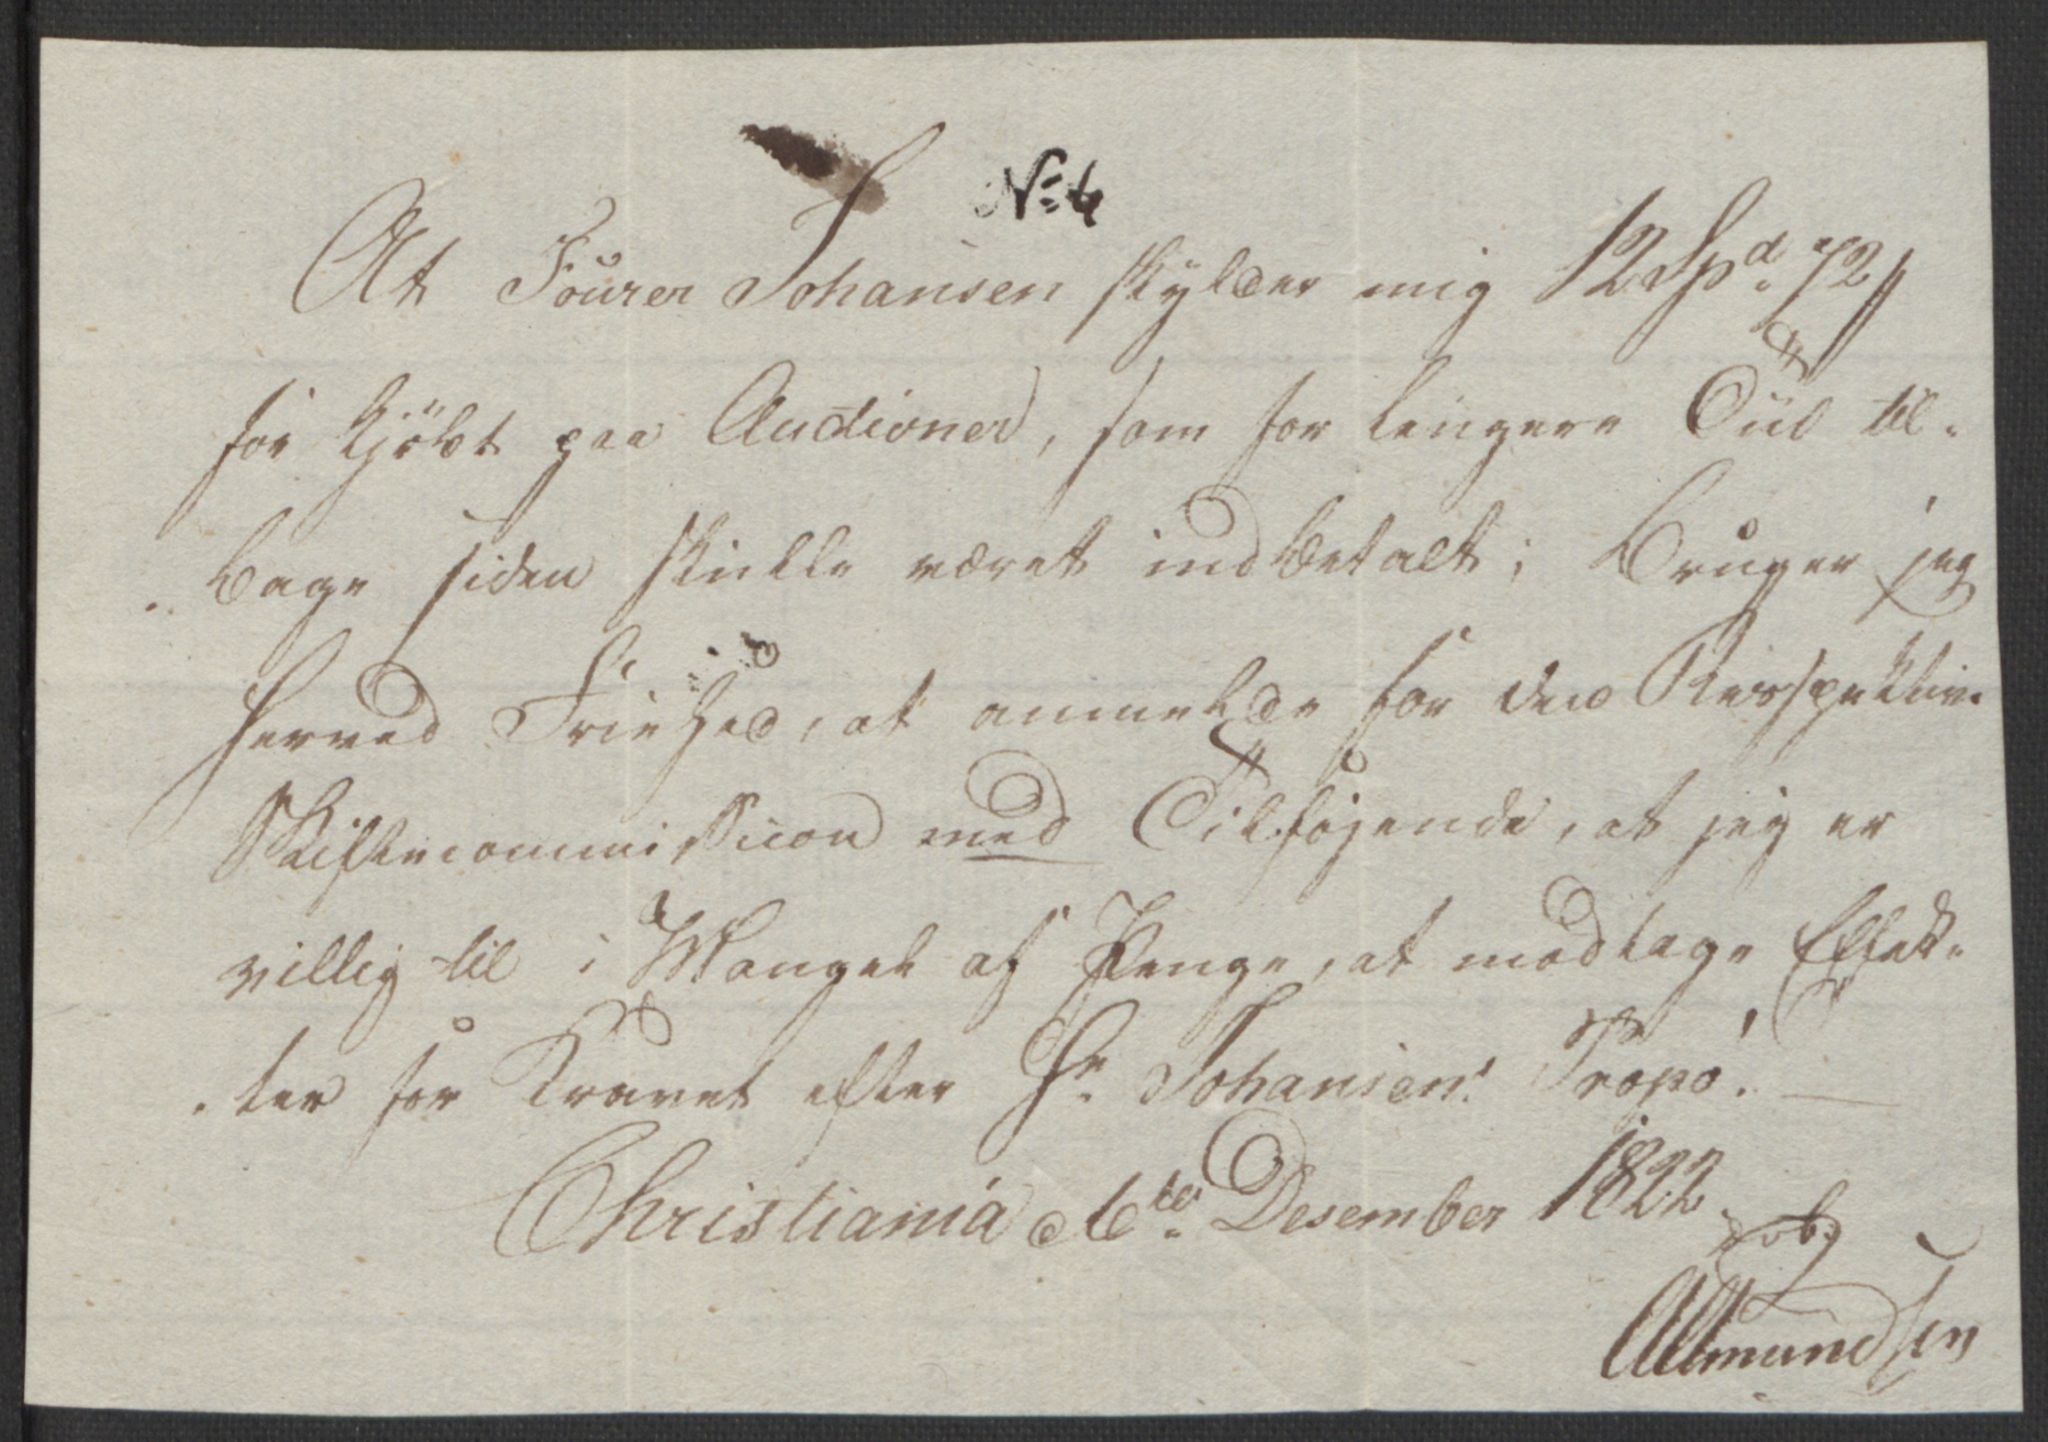 No 4
At Fourer Johansen skylder mig 12 Spd. 72 s
for kjöbt paa Auctioner, som for lengere Tiid til-
bage siden skulle været indbetalt; bruger jeg
herved Friehed, at anmelde for den Respektiv.
Skiftecommission med Tilføjende, at jeg er
villig til i Mangel af Penge, at modtage Effek-
ter for Kravet efter Hr. Johansens
Christiania d. 6te Desember 1822.
Amundsen